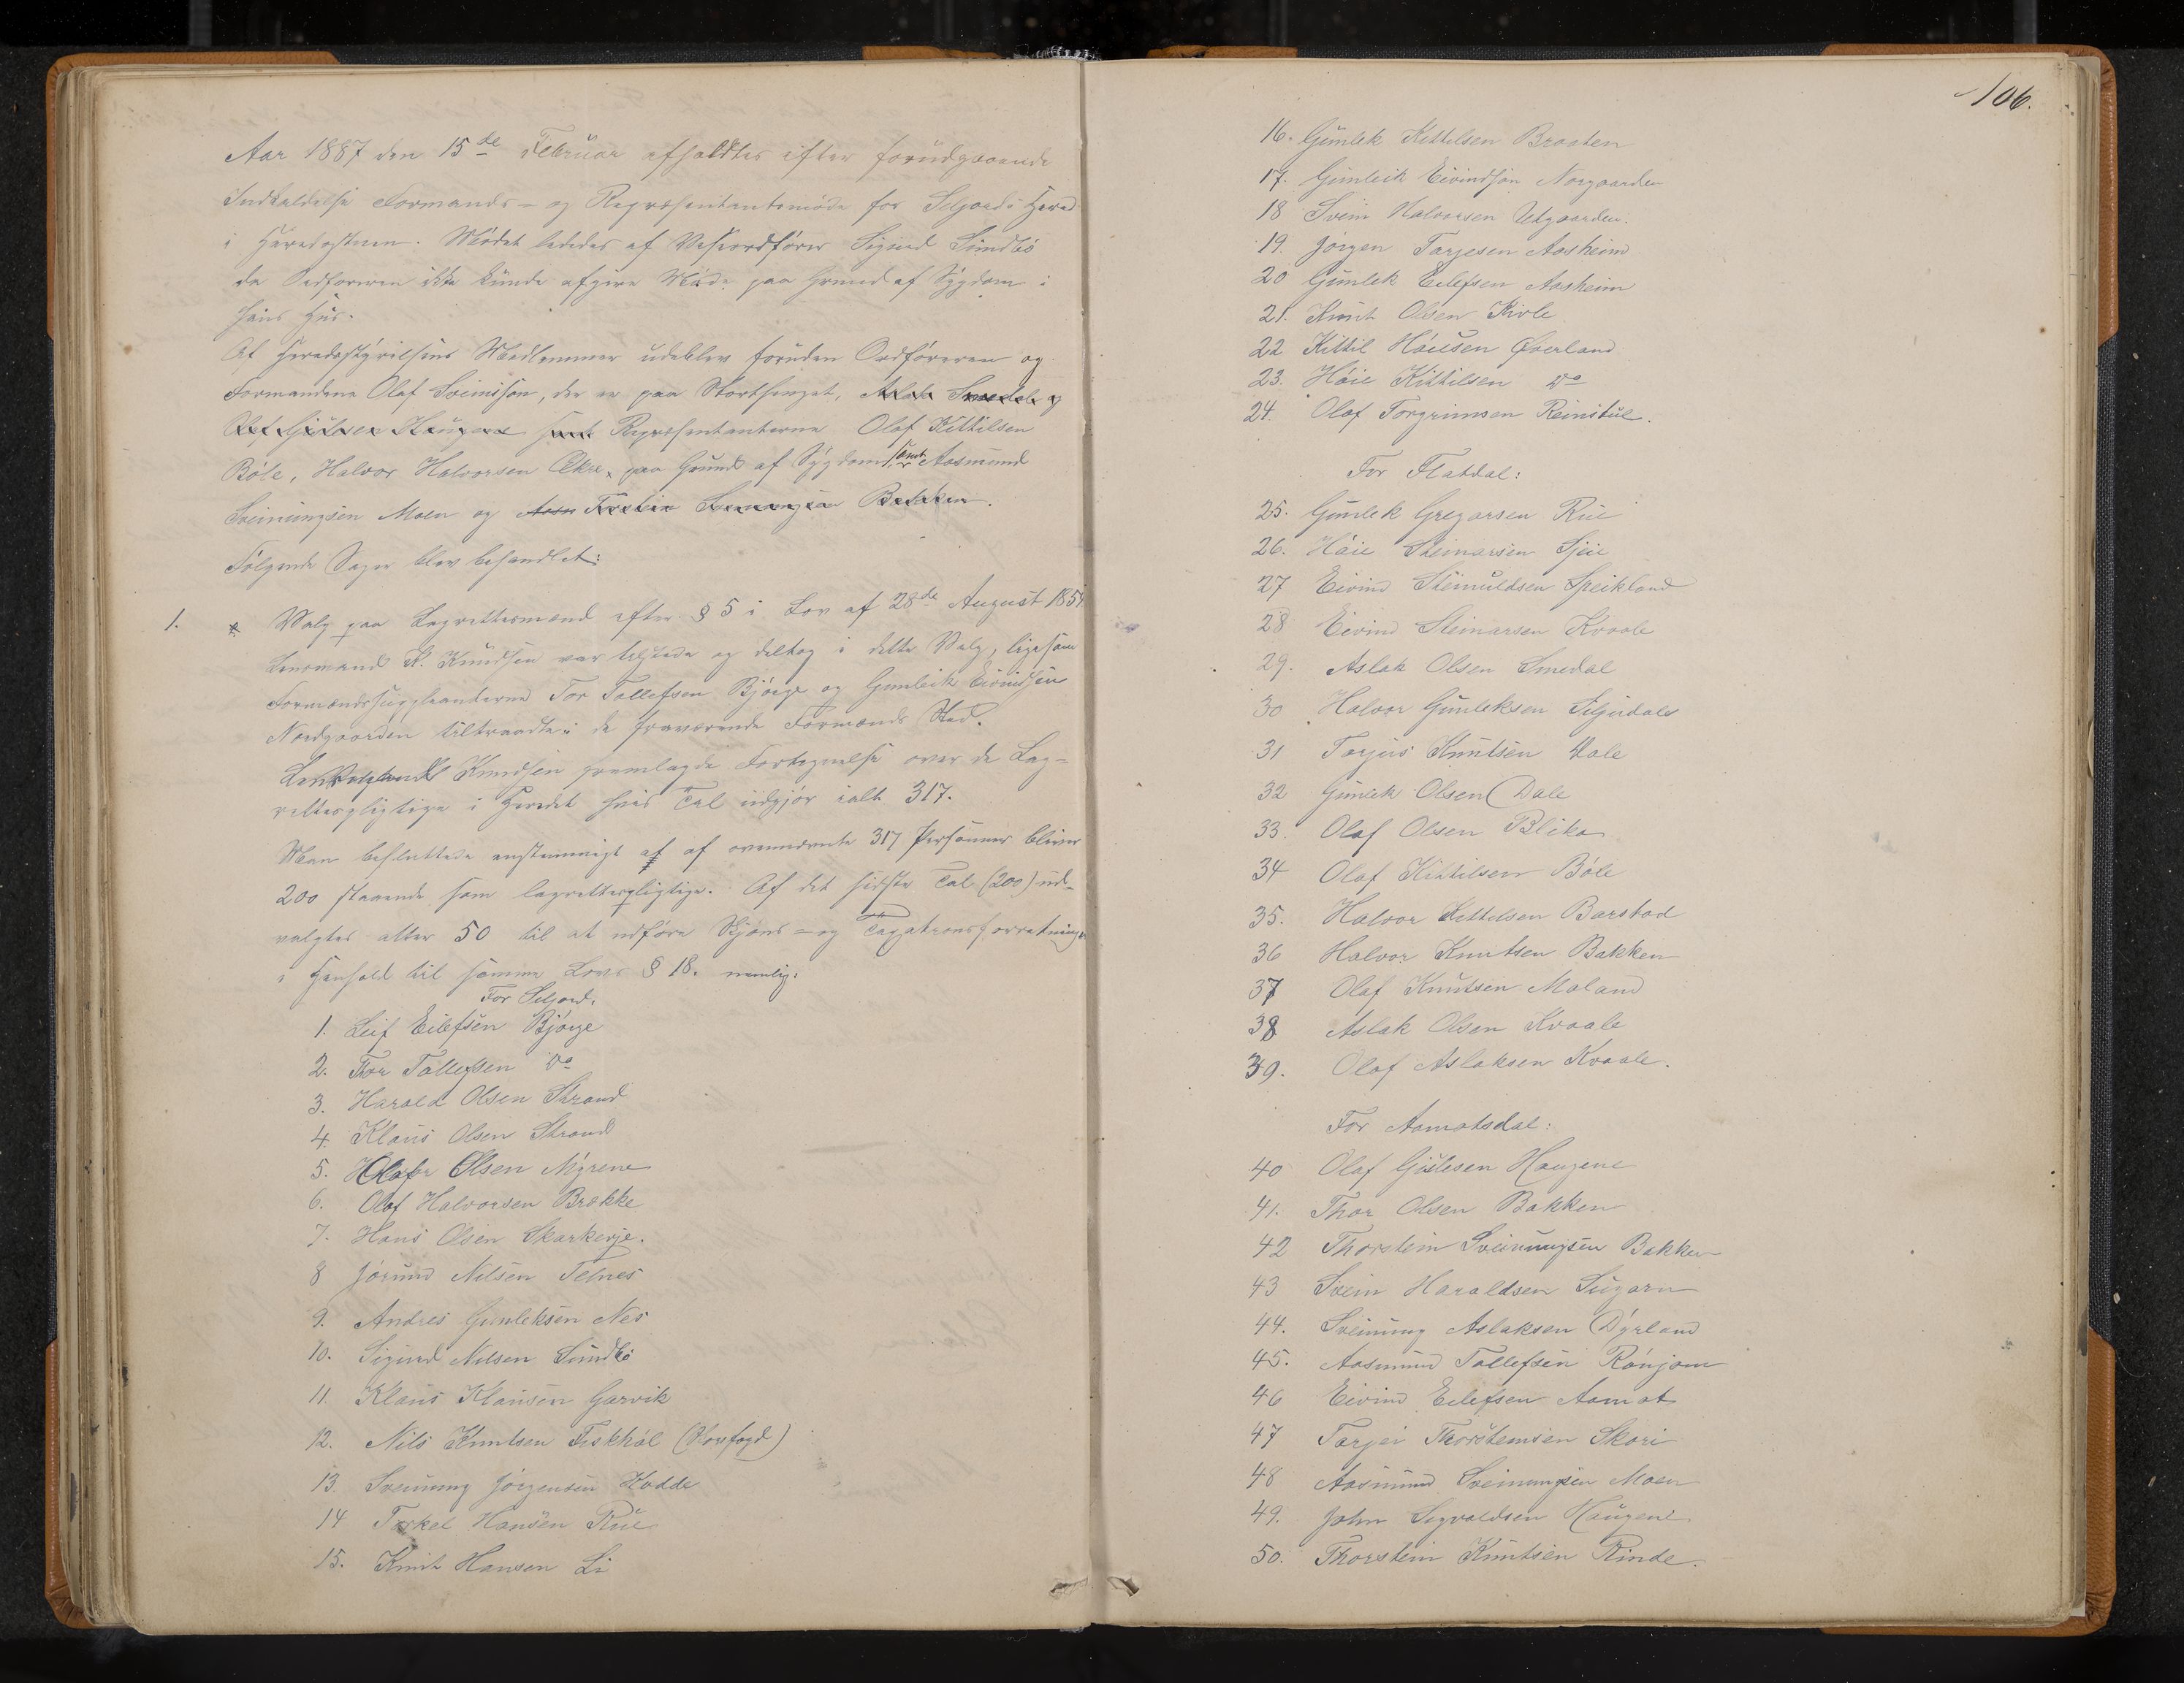 Aar 1887 den 15de Februar afholdtes efter forudgaaende
Indkaldelse Formands- og Repræsentantmøde for Seljords Hered
i Heredsstuen. Mødet lededes af Viseordfører Sigurd Sundbö
da Ordføreren ikke kunde afgive Møde paa Grund af Sygdom i
hans Hus.
Af Heredsstyrelsens Medlemmer udeblev foruden Ordføreren og
Formandene Olaf Sveinsson, der er paa Storthinget, Aslak Smedal og
Olaf Gjulsen Haugene samt Repræsentanterne Olaf Kittilsen
Böle, Halvor Halvorsen Økre, paa Grund af Sygdom samt Aasmund
Sveinungsen Moen og Torstein Sveinungsen Bakken.
Følgende Sager blev behandlet:
1. Valg paa Lagrettesmænd efter § 5 i Lov af 28de August 1854
Lensmand K. Knudsen var tilstede og deltog i dette Valg, ligesom
Formandssuppleanterne Tor Tollefsen Björge og Gunleik Eivindsen
Nordgaarden tiltraadte i de fraværende Formænds Sted.
Lensmand Knudsen fremlagde Fortegnelse over de Lag-
rettespligtige i Heredet hvis Tal udgjør ialt 317.
Man besluttede enstemmigt at af ovennævnte 317 Personner bliver
200 staaende som lagrettespligtige. Af det sidste Tal (200) ud-
valgtes atter 50 til at udføre Skjøns- og Taxationsforretninger
i Henhold til samme Lovs § 18. nemlig:
For Seljord.
1. Leif Eilefsen Björge
2. Thor Tollefsen Do
3. Harald Olsen Strand
4. Klaus Olsen Strand
5. Olaf Olsen Myrene
6. Olaf Halvorsen Brække
7. Hans Olsen Skarkerje.
8 Jörund Nilsen Telnes
9. Andres Gunleksen Nes
10. Sigurd Nilsen Sundbö
11. Klaus Klausen Garvik
12. Nils Knutsen Fiskhöl (Skovfogd)
13. Sveinung Jörgensen Hodde
14 Torkel Hansen Rue
15. Knut Hansen Li
106.
16. Gunlek Kittilsen Braaten
17. Gunleik Eivindsön Norgaarden
18 Svein Halvorsen Utgaarden.
19. Jörgen Tarjesen Aasheim
20 Gunlek Eilefsen Aasheim
21. Knut Olsen Kivle
22 Kittil Höiesen Överland
23. Höie Kittilsen Do
24. Olaf Torgrimsen Reinstul.
For Flatdal:
25. Gunlek Gregarsen Rue
26. Höie Steinarsen Gjeie
27 Eivind Steinuldsen Speikland
28 Eivind Steinarsen Kvaale
29. Aslak Olsen Smedal
30 Halvor Gunleksen Siljudalen
31 Torjus Knutsen Dale
32 Gunlek Olsen Dale
33. Olaf Olsen Blika
34 Olaf Kittilsen Böle
35. Halvor Kittilsen Barstad
36 Halvor Knutsen Bakken
37 Olaf Knutsen Moland
38 Aslak Olsen Kvaale
39. Olaf Aslaksen Kvaale.
For Aamotsdal:
40 Olaf Gjulesen Haugene
41. Thor Olsen Bakken
42 Thorstein Sveinungsen Bakken
43 Svein Haraldsen Sugarn
44. Sveinung Aslaksen Dyrland
45. Aasmund Tollefsen Rönjom
46 Eivind Eilefsen Aamot
47 Tarjei Thorsteinsen Skori
48 Aasmund Sveinungsen Moen
49. John Sigvaldsen Haugene
50. Thorstein Knutsen Rinde.